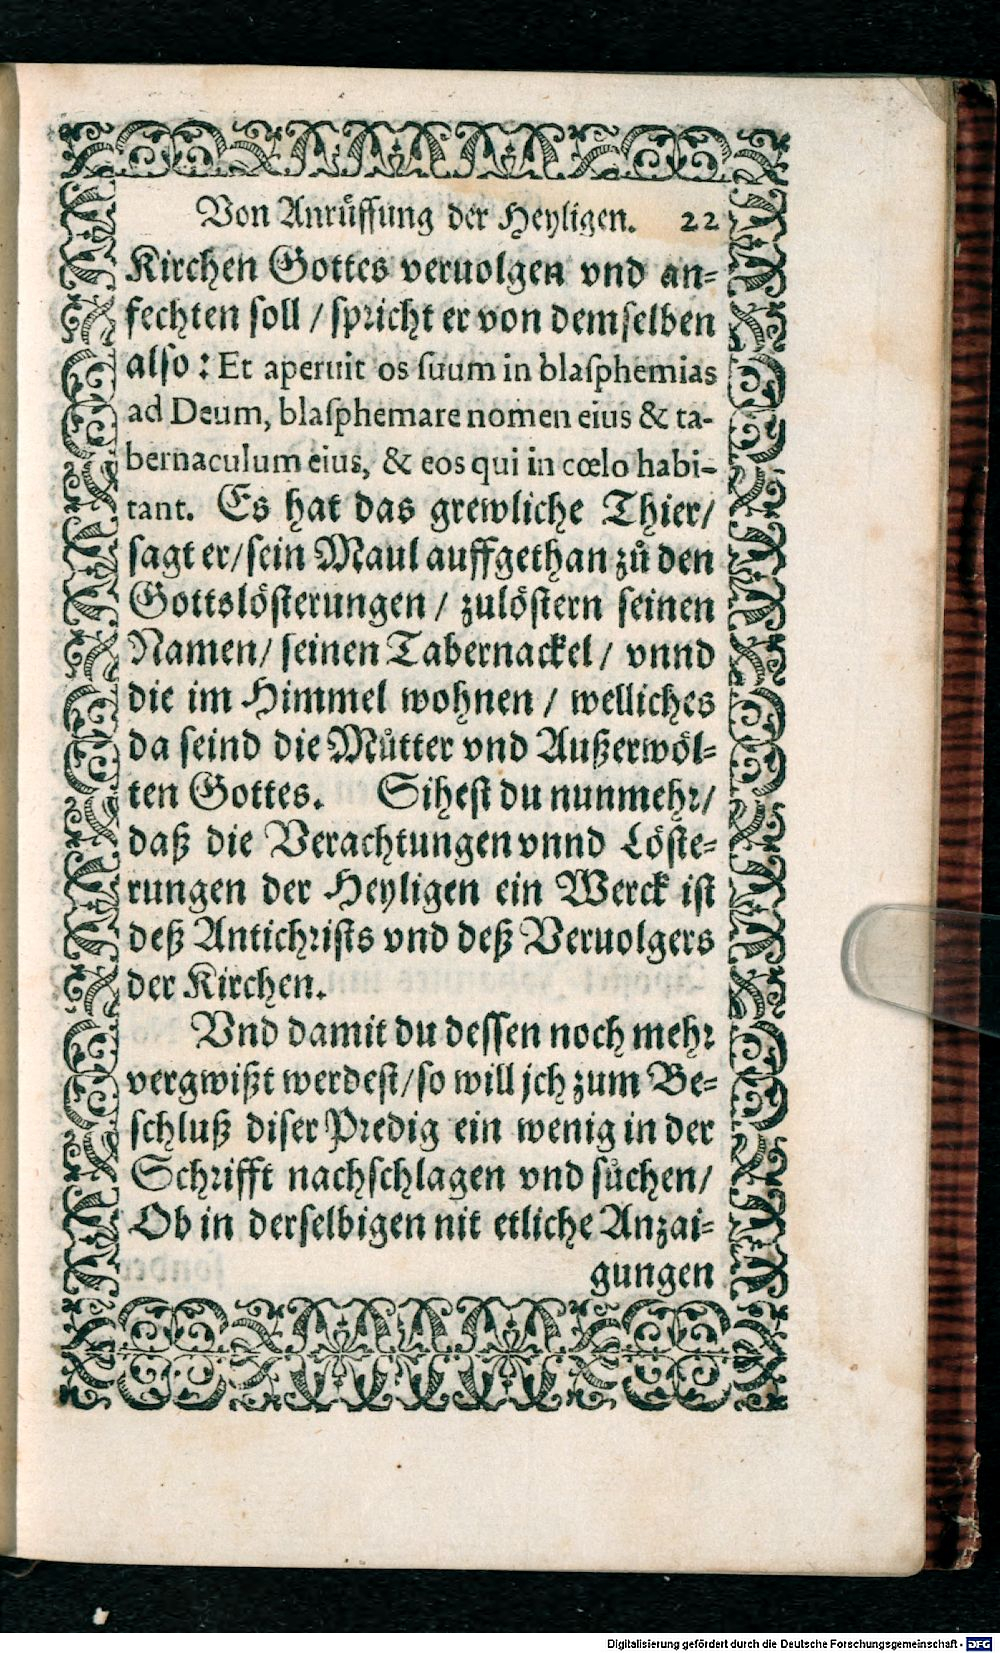 Von Anrůffung der Heyligen. 22
Kirchen Gottes veruolgen vnd an-
fechten soll / spricht er von demselben
also: Et aperuit os suum in blasphemias
ad Deum, blasphemare nomen eius & ta-
bernaculum eius, & eos qui in cœlo habi-
tant. Es hat das grewliche Thier/
sagt er/sein Maul auffgethan zů den
Gottslösterungen / zulöstern seinen
Namen/ seinen Tabernackel / vnnd
die im Himmel wohnen / welliches
da seind die Můtter vnd Außerwöl-
ten Gottes. Sihest du nunmehr/
daß die Verachtungen vnnd Löste-
rungen der Heyligen ein Werck ist
deß Antichrists vnd deß Veruolgers
der Kirchen.
Vnd damit du dessen noch mehr
vergwißt werdest/so will jch zum Be-
schluß diser Predig ein wenig in der
Schrifft nachschlagen vnd sůchen/
Ob in derselbigen nit etliche Anzai-
gungen
Digitalisierung gefördert durch die Deutsche Forschungsgemeinschaft - DFG